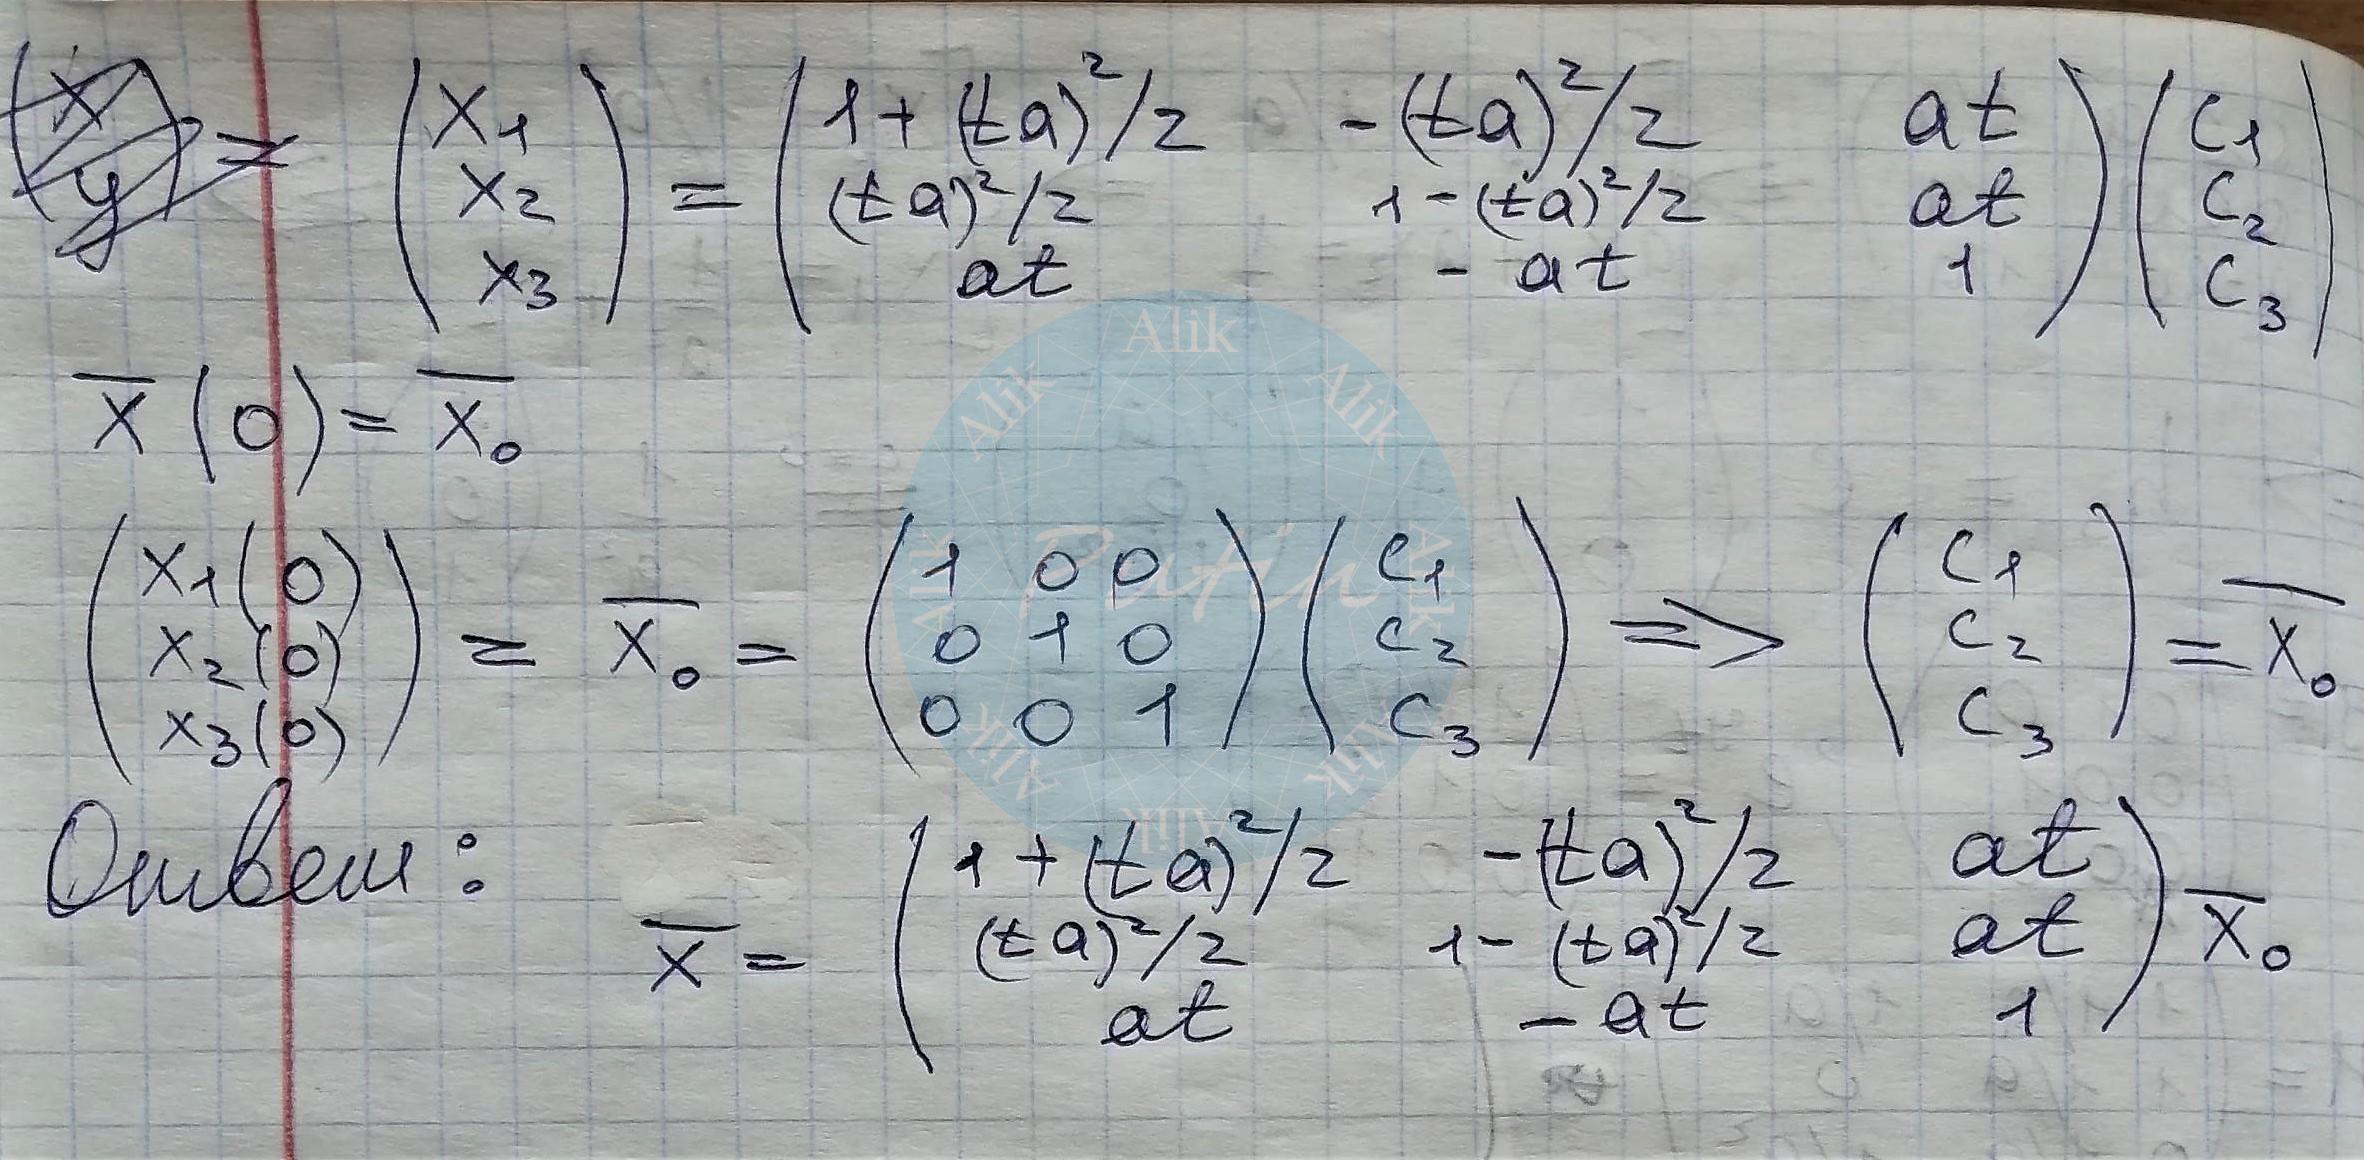 (x y) = (x₁ x₂ x₃) = (1 + (ta)²/2 -(ta)²/2 at
(ta)²/2 1 - (ta)²/2 at
at - at 1) (c₁ c₂ c₃)
x̄(0) = x̄₀
(x₁(0) x₂(0) x₃(0)) = x̄₀ = (1 0 0
0 1 0
0 0 1) (c₁ c₂ c₃) => (c₁ c₂ c₃) = x̄₀
Ответ: x̄ = (1 + (ta)²/2 -(ta)²/2 at
(ta)²/2 1 - (ta)²/2 at
at - at 1) x̄₀
Alik
Alik
Alik
Alik
Alik
Patin
Alik
Alik
Alik